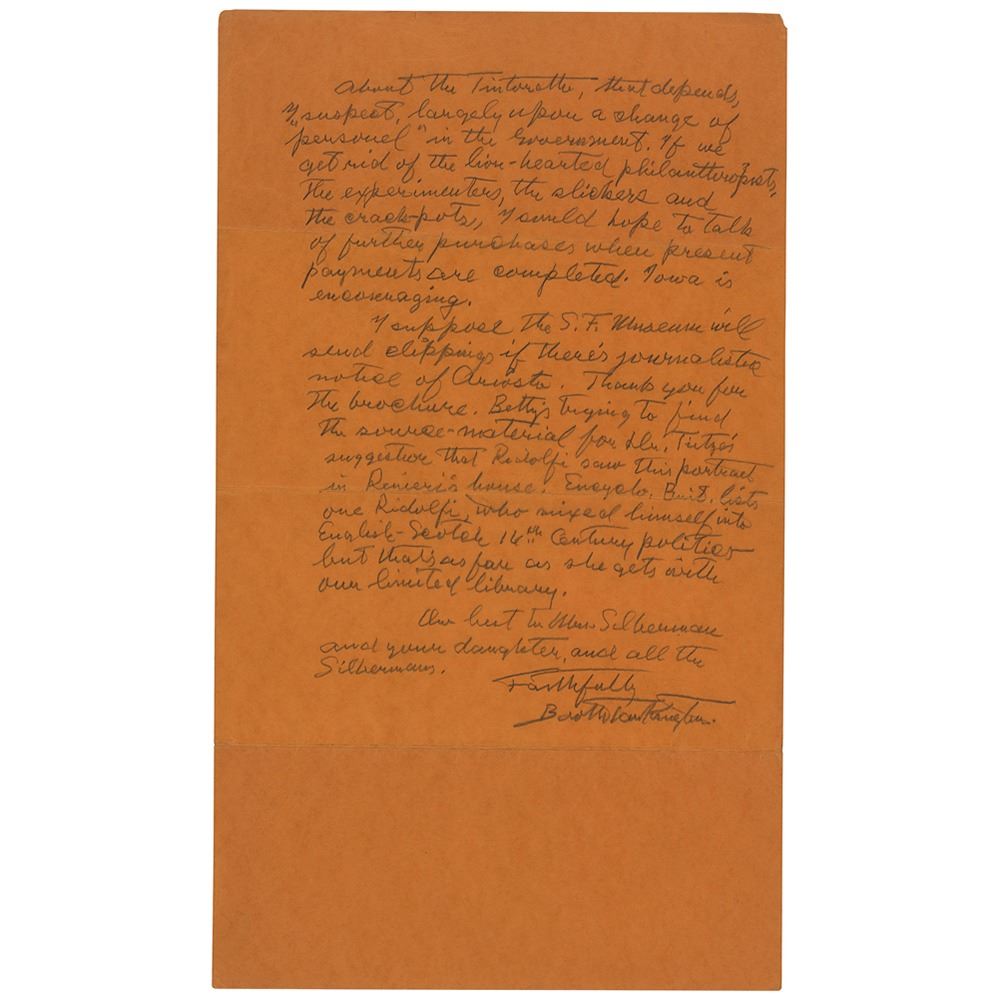 About the Tintoretto, that depends,
I suspect, largely upon a "change of
personel" in the Government. If we
get rid of the lion-hearted philanthropists,
the experimenters, the slickers and
the crack-pots, I would hope to talk
of further purchases when present
payments are completed. Iowa is
encouraging.
I suppose the S.F. Museum will
send clippings if there's journalistic
notice of Ariosto. Thank you for
the brochure. Betty's trying to find
the source-material for Dr. Tietze's
suggestion that Ridolfi saw this portrait
in Renieri's house. Encyclo. Brit. lists
one Ridolfi, who mixed himself into
English-Scotch 16th Century politics
but that's as far as she gets with
our limited library.
Our best to Mrs. Silberman
and your daughter, and all the
Silbermans.
Faithfully
Booth Tarkington.